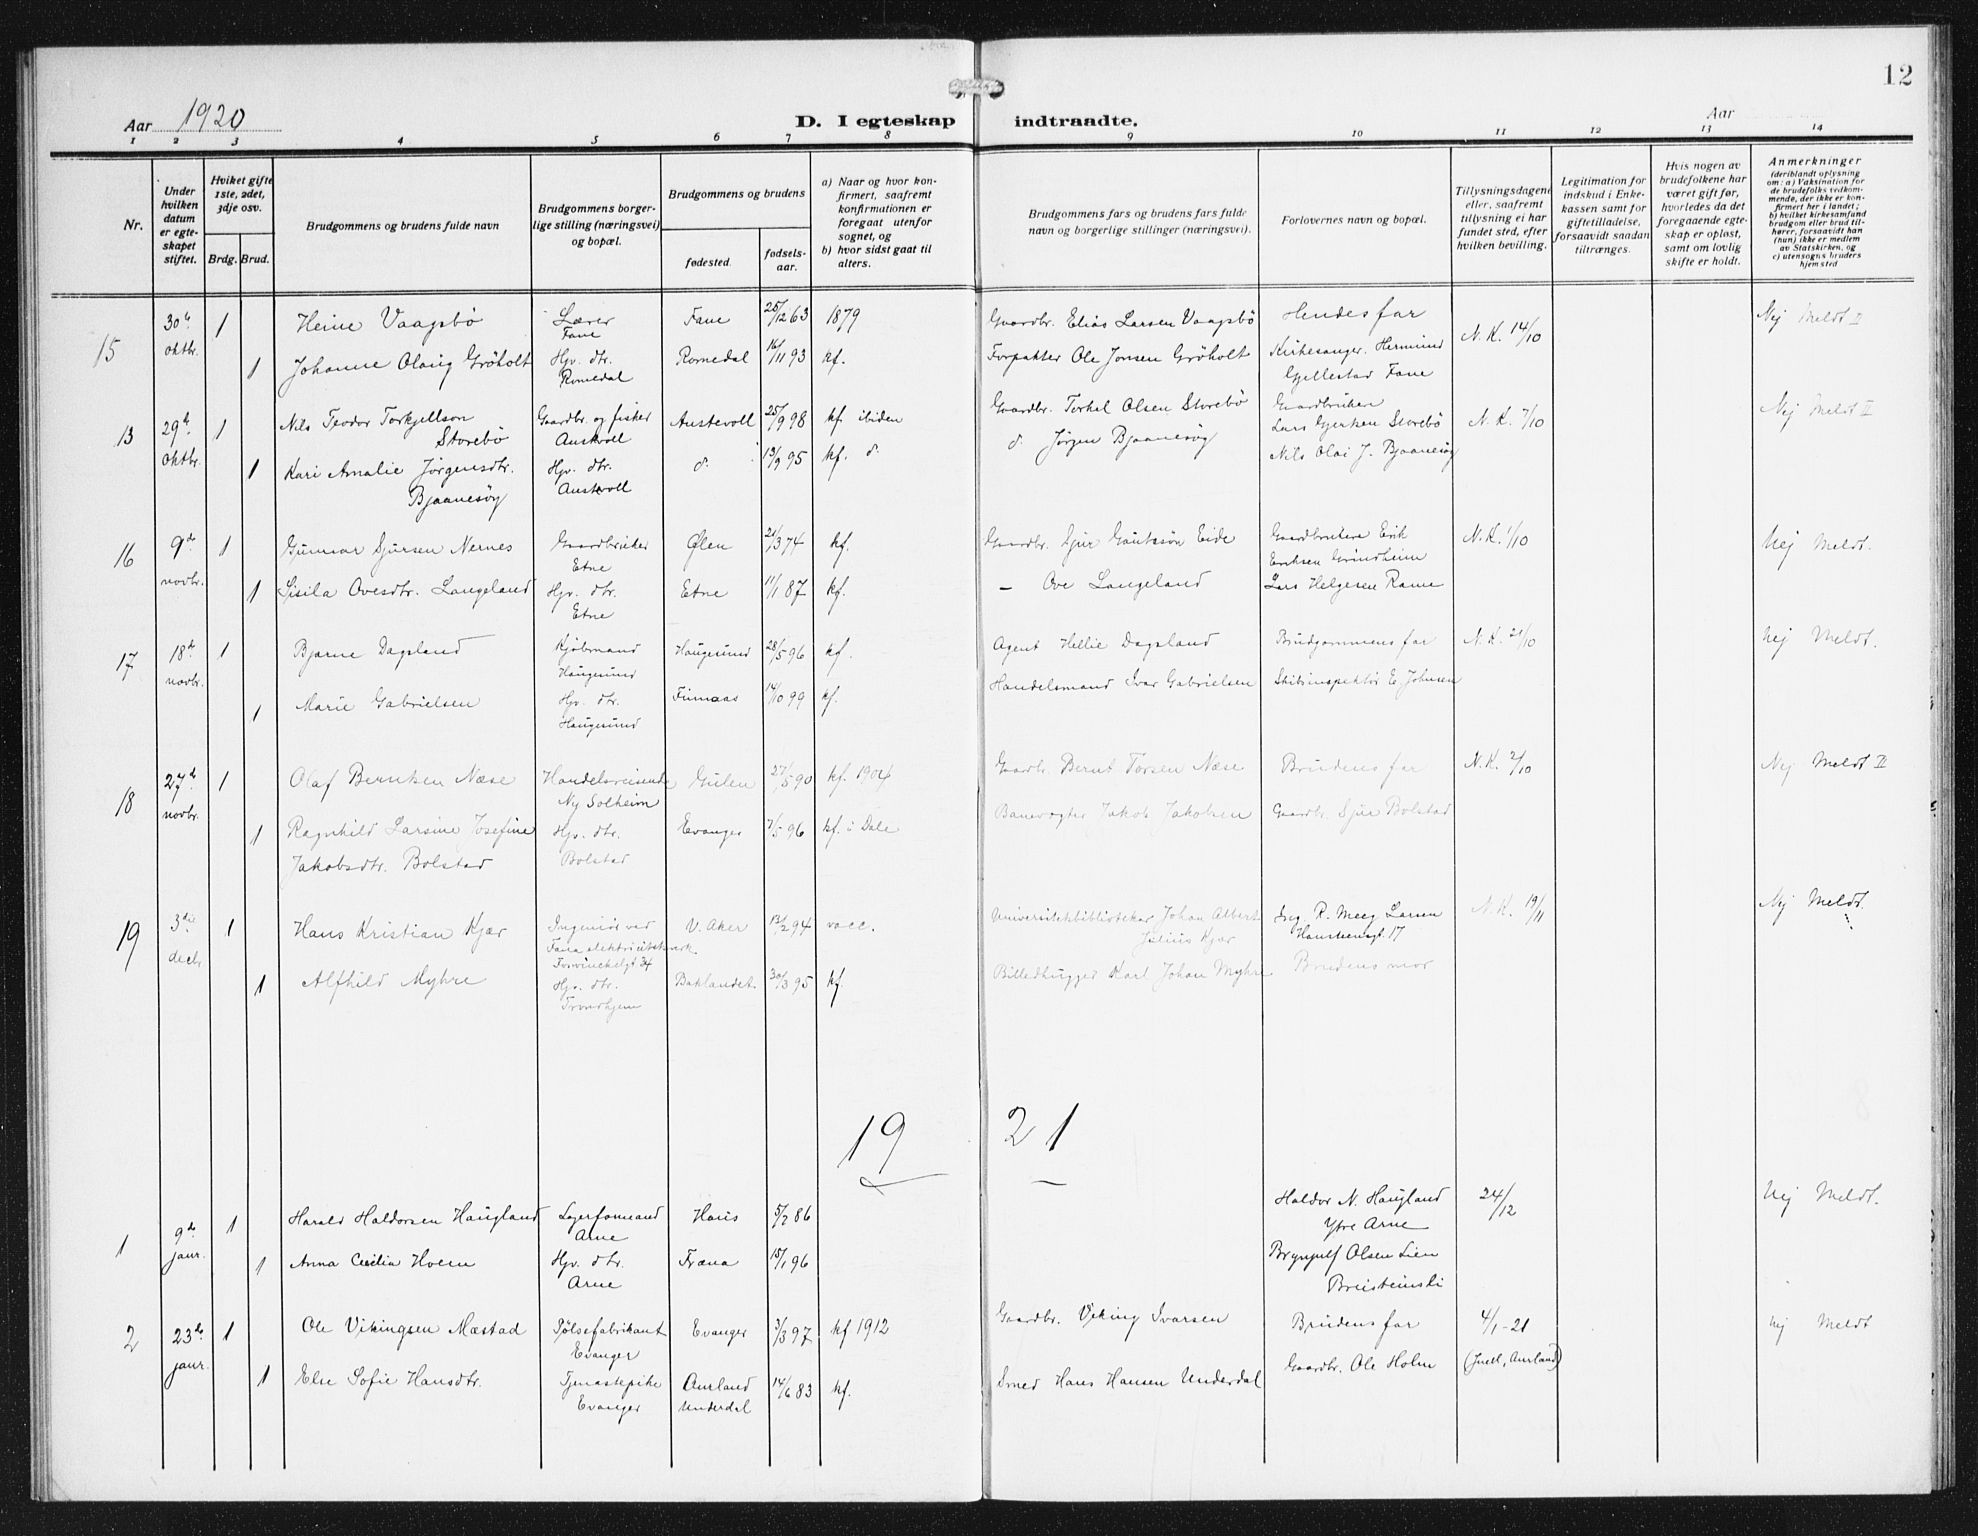 12
Aar 1920
D. I egteskap indtraadte.
Aar
1 2 3 4 5 6 7 8 9 10 11 12 13 14
Nr.
Under hvilken datum er egteskapet stiftet.
Hviket gifte 1ste, 2det, 3dje osv.
Brdg. Brud.
Brudgommens og brudens fulde navn
Brudgommens borgerlige stilling (næringsvei) og bopæl.
Brudgommens og brudens
fødested.
fødselsaar.
a) Naar og hvor konfirmert, saafremt konfirmationen er foregaat utenfor sognet, og
b) hvor sidst gaat til alters.
Brudgommens fars og brudens fars fulde navn og borgerlige stillinger (næringsvei).
Forlovernes navn og bopæl.
Tillysningsdagene eller, saafremt tillysning ei har fundet sted, efter hvilken bevilling.
Legitimation for indskud i Enkekassen samt for giftetilladelse, forsaavidt saadan tiltrænges.
Hvis nogen av brudefolkene har været gift før, hvorledes da det foregaaende egteskap er opløst, samt om lovlig skifte er holdt.
Anmerkninger
(deriblandt oplysning om: a) Vaksination for de brudefolks vedkommende, der ikke er konfirmert her i landet; b) hvilket kirkesamfund brudgom eller brud tilhører, forsaavidt han (hun) ikke er medlem av Statskirken, og c) utensogns bruders hjemsted
15 30te oktbr. 1 Heine Vaagsbø Lærer Fane Fane 25/12 63 1879 Gaardbr. Elias Larsen Vaagsbø Hendes far N.K. 14/10 Nej Meldt II
1 Johanne Olaug Grøholt Hjv. dtr. Romedal Romedal 16/11 93 kf. Forpakter Ole Jonsen Grøholt Kirkesanger Hermund Gjellestad Fane
13 29de oktbr. 1 Nils Teodor Torkjellson Storebø Gaardbr. og fisker Austevoll Austevoll 25/9 98 kf. ibiden Gaardbr. Torkel Olsen Storebø Gaardbruken Lars Gjerken Storebø N.K. 7/10 Nej Meldt II
1 Kari Amalie Jørgensdtr. Bjaanesøy Hjv. dtr. Austevoll d. 13/9 95 kf. d. d. Jørgen Bjaanesøy Nils Olai J. Bjaanesøy
16 9de novbr. 1 Gunnar Sjursen Nernes Gaardbruker Etne Ølen 21/3 74 kf. Gaardbr. Sjur Gautesøn Eide Gaardbrukere Erik Eriksen Grindheim N.K. 1/10 Nej Meldt.
1 Sisila Ovesdtr. Langeland Hjv. dtr. Etne Etne 11/1 87 kf. — Ove Langeland Lars Helgesen Rame
17 18de novbr. 1 Bjarne Dagsland Kjøbmand Haugesund Haugesund 28/5 96 kf. Agent Hellie Dagsland Brudgommens far N.K. 21/10 Nej Meldt.
1 Marie Gabrielsen Hjv. dtr. Haugesund Finnaas 14/10 99 kf. Handelsmand Ivar Gabrielsen Skibsinspektør E. Johnsen
18 27de novbr. 1 Olaf Berntsen Næse Handelsreisende Ny Solheim Gulen 27/5 90 kf. 1904 Gaardb. Bernt Torsen Næse Brudens far N.K. 2/10 Nej Meldt II
1 Ragnhild Larsine Josefine Jakobsdtr. Bolstad Hjv. dtr. Bolstad Evanger 7/5 96 kf. i Dale Banevogter Jakob Jakobsen Gaardbr. Sjur Bolstad
19 3die decb. 1 Hans Kristian Kjær Ingeniør ved Fana elektricitetsverk V. Aker 13/2 94 vacc. Universitetsbibliotekar Johan Albert Julius Kjær Ing. R. Meeg Larsen Hansteensgt. 17 N.K. 19/11 Nej Meldt.
1 Alfhild Myhre Hjv. dtr. Trondhjem Baklandet 30/3 95 kf. Billedhugger Karl Johan Myhre Brudens mor
19 21
1 9de janr. 1 Harald Haldorsen Haugland Lagerformand Arne Haus 5/2 86 Haldor N. Haugland Ytre Arne 24/12 Nej Meldt.
1 Anna Cecilia Hoem Hjv. dtr. Arne Fræna 15/1 96 Brynjulf Olsen Lien
2 23de janr. 1 Ole Vikingsen Mæstad Pølsefabrikant Evanger Evanger 3/3 97 kf 1912 Gaardbr. Viking Ivarsen Brudens far 4/1-21 Nej Meldt
1 Else Sofie Hansdtr. Tjenestepike Evanger Aurland Underdal 14/6 83 kf. Smed Hans Hansen Underdal Gaardbr. Ole Holm